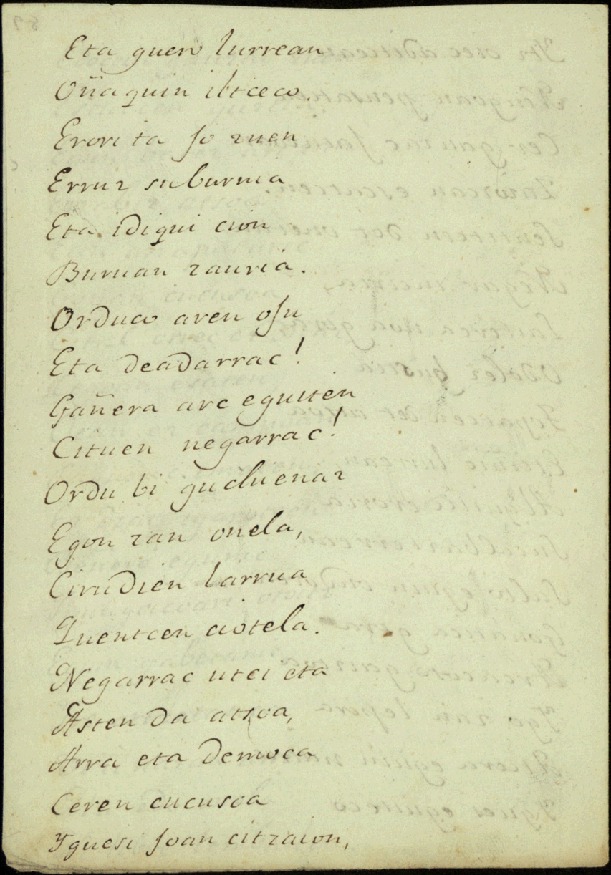 Eta guero lurrean
Oñaquin ilteeco.
Erori ta jo zuen
Errur suburnia
Eta idiqui cion
Buruan zauria.
Orduco aren osu
Eta deadarrac!
Gañera arc eguiten
Cituen negarrac!
Ordu bi gucluenaz
Egon zan onela,
Cirudien larrua
Quentcen ciotela.
Negarrac utci eta
Asten da atzoa,
Arra eta demoea
Ceren cucusoa
Yguesi joan citzaion,